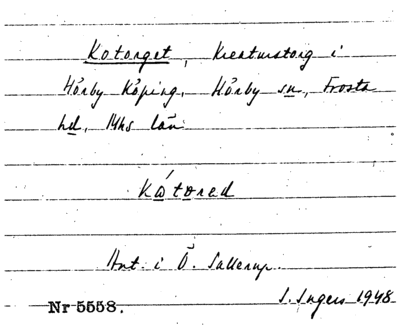 Kotorget, Kreaturstorg i
Hörby Köping, Hörby sn, Frosta
hd, Mhs län
Kátored
Ant. i Ö. Sallerup
S. Ingers 1948
Nr 5558.